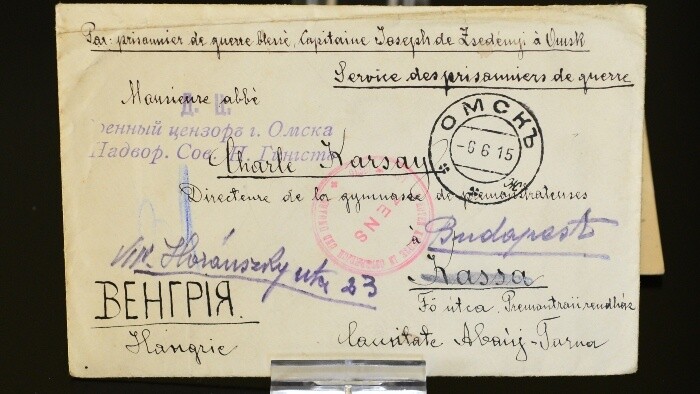 Par prisonnier de guerre blessé, Capitaine Joseph de Zsedényi à Omsk
Service des prisonniers de guerre
Monsieur abbé
Д. Ц.
военный цензоръ г. Омска
Надвор. Сов. Н.
ОМСКЪ
-6 6 15
Charle Karsay
Directeure de la gymnasée de premontratenses
ZENS
à Budapest
VIII. Horánszky utca 23
Kassa
ВЕНГРІЯ.
Fő utca. Premontrairendház
Hongrie
Comitate Abaúj-Torna